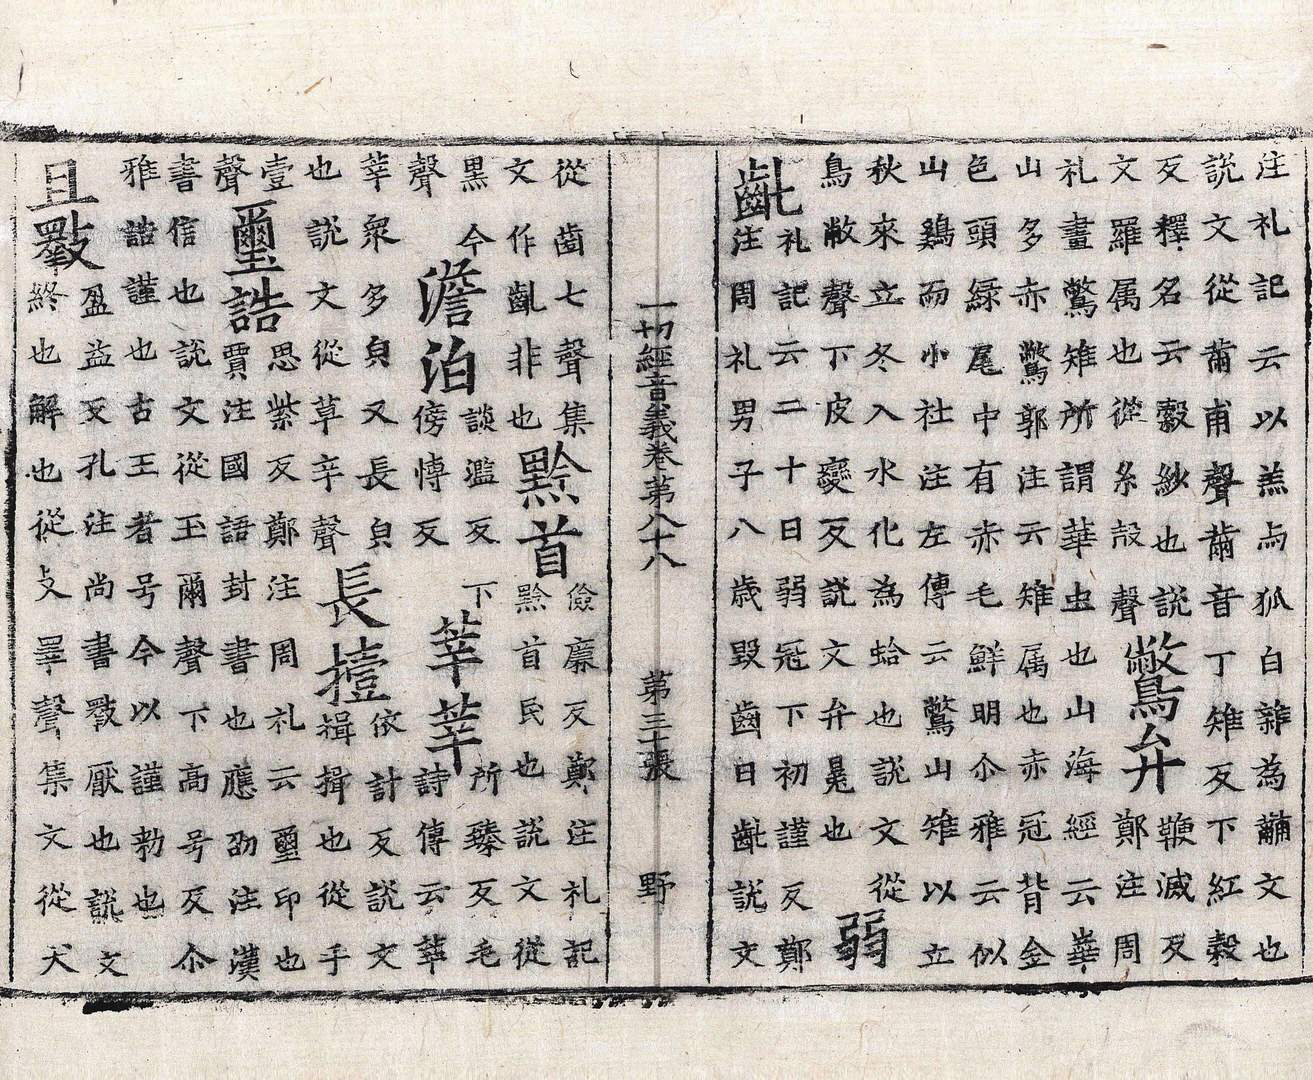 注礼記云以羔与狐白雜為黼文也
説文從黹甫聲黹音丁雉反下紅穀
反釋名云縠紗也説
文羅属也從糸殻聲
鷩弁
鞭滅反
鄭注周
礼畫鷩雉所謂華虫也山海經云華
山多亦鷩郭注云雉属也赤冠背金
色頭緑尾中有赤毛鮮明尒雅云似
山鷄而小社注左傳云鷩山雉以立
秋來立冬入水化為蛤也説文從
鳥敝聲下皮變反説文弁冕也
弱
齔
礼記云二十日弱冠下初謹反鄭
注周礼男子八歳毀齒日齔説文
一切經音義卷第八十八 第三十張 野
從齒七聲集
文作齓非也
黔首
儉廉反鄭注礼記
黔首民也説文從
黑今
聲
澹泊
談濫反下
傍愽反
莘莘
所臻反毛
詩傳云莘
莘衆多皃又長皃
也説文從草辛聲
長撎
依計反説文
揖揖也從手
壹
聲
璽誥
思紫反鄭注周礼云璽印也
賈注國語封書也應劭注漢
書信也説文從玉爾聲下高号反尒
雅誥謹也古王者号今以謹勑也
且斁
盈益反孔注尚書斁厭也説文
終也解也從攴睪聲集文從犬